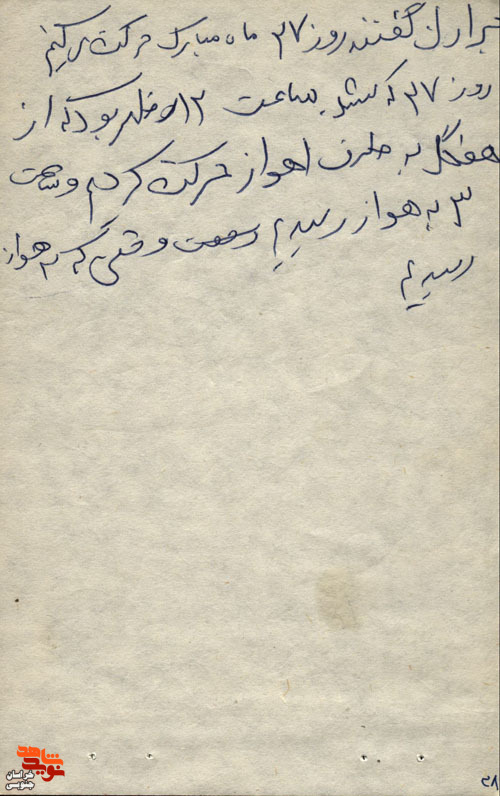 گفتند روز ۲۷ ماه مبارک حرکت می‌کنیم
روز ۲۷ که شد ساعت ۱۲ ظهر بود که از
هفتگل به طرف اهواز حرکت کردیم و ساعت
۳ به هواز رسیدیم وقتی که به هواز
رسیدیم
نوید شاهد
خراسان جنوبی
۲۸